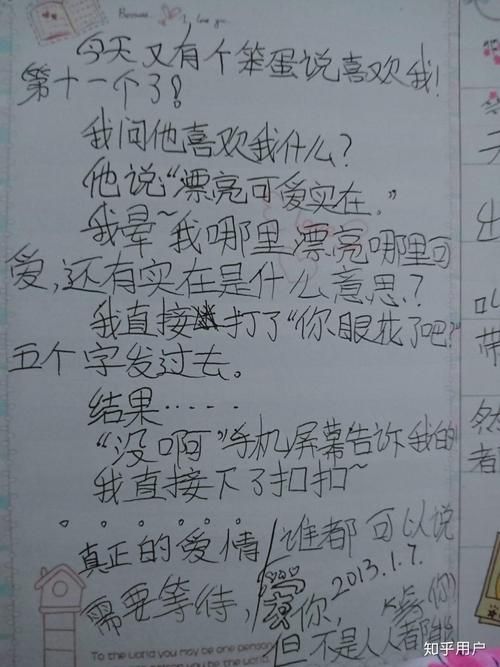 Because
I love you
今天又有个笨蛋说喜欢我!
第十一个了?
我问他喜欢我什么?
他说“漂亮可爱实在。”
我晕~我哪里漂亮哪里可
爱,还有实在是什么意思?
我直接打了“你眼花了吧?”
五个字发过去。
结果······
“没啊”手机屏幕告诉我的
我直接下了扣扣~
。。。。。。
真正的爱情
需要等待,
谁都可以说
爱你,
2013.1.7.
但不是人人都能
等你
To the world you may be one person
知乎用户